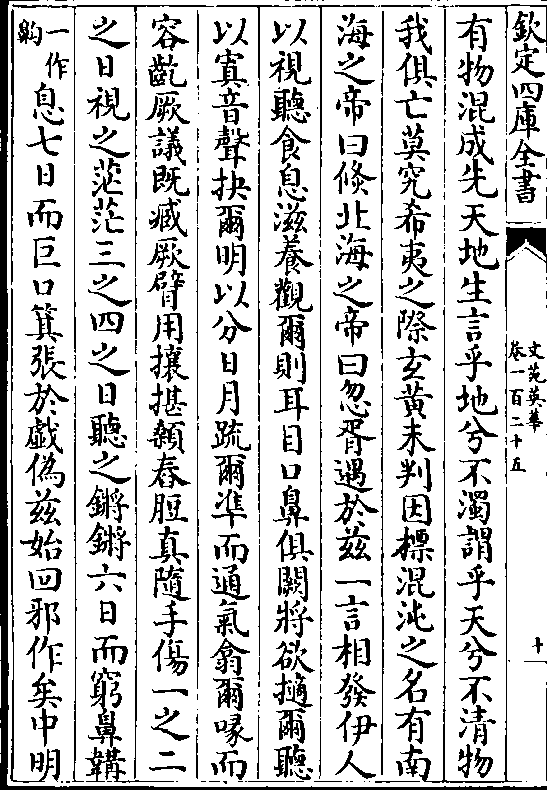 欽定四庫全書
文苑英華
卷一百二十五
十
有物混成先天地生言乎地兮不濁謂乎天兮不清物
我俱亡莫究希夷之際玄黃未判因標混沌之名有南
海之帝曰倐北海之帝曰忽胥遇於兹一言相發伊人
以視聽食息滋養觀爾則耳目口鼻俱闕將欲擿爾聽
以寘音聲抉爾明以分日月疏爾準而通氣翕爾喙而
容齕厥議既臧厥臂用攘揕顙舂脰真隨手傷一之二
之日視之茫茫三之四之日聽之鏘鏘六日而窮鼻鞲
一作
齁
息七日而巨口箕張於戲偽兹始回邪作矣中明